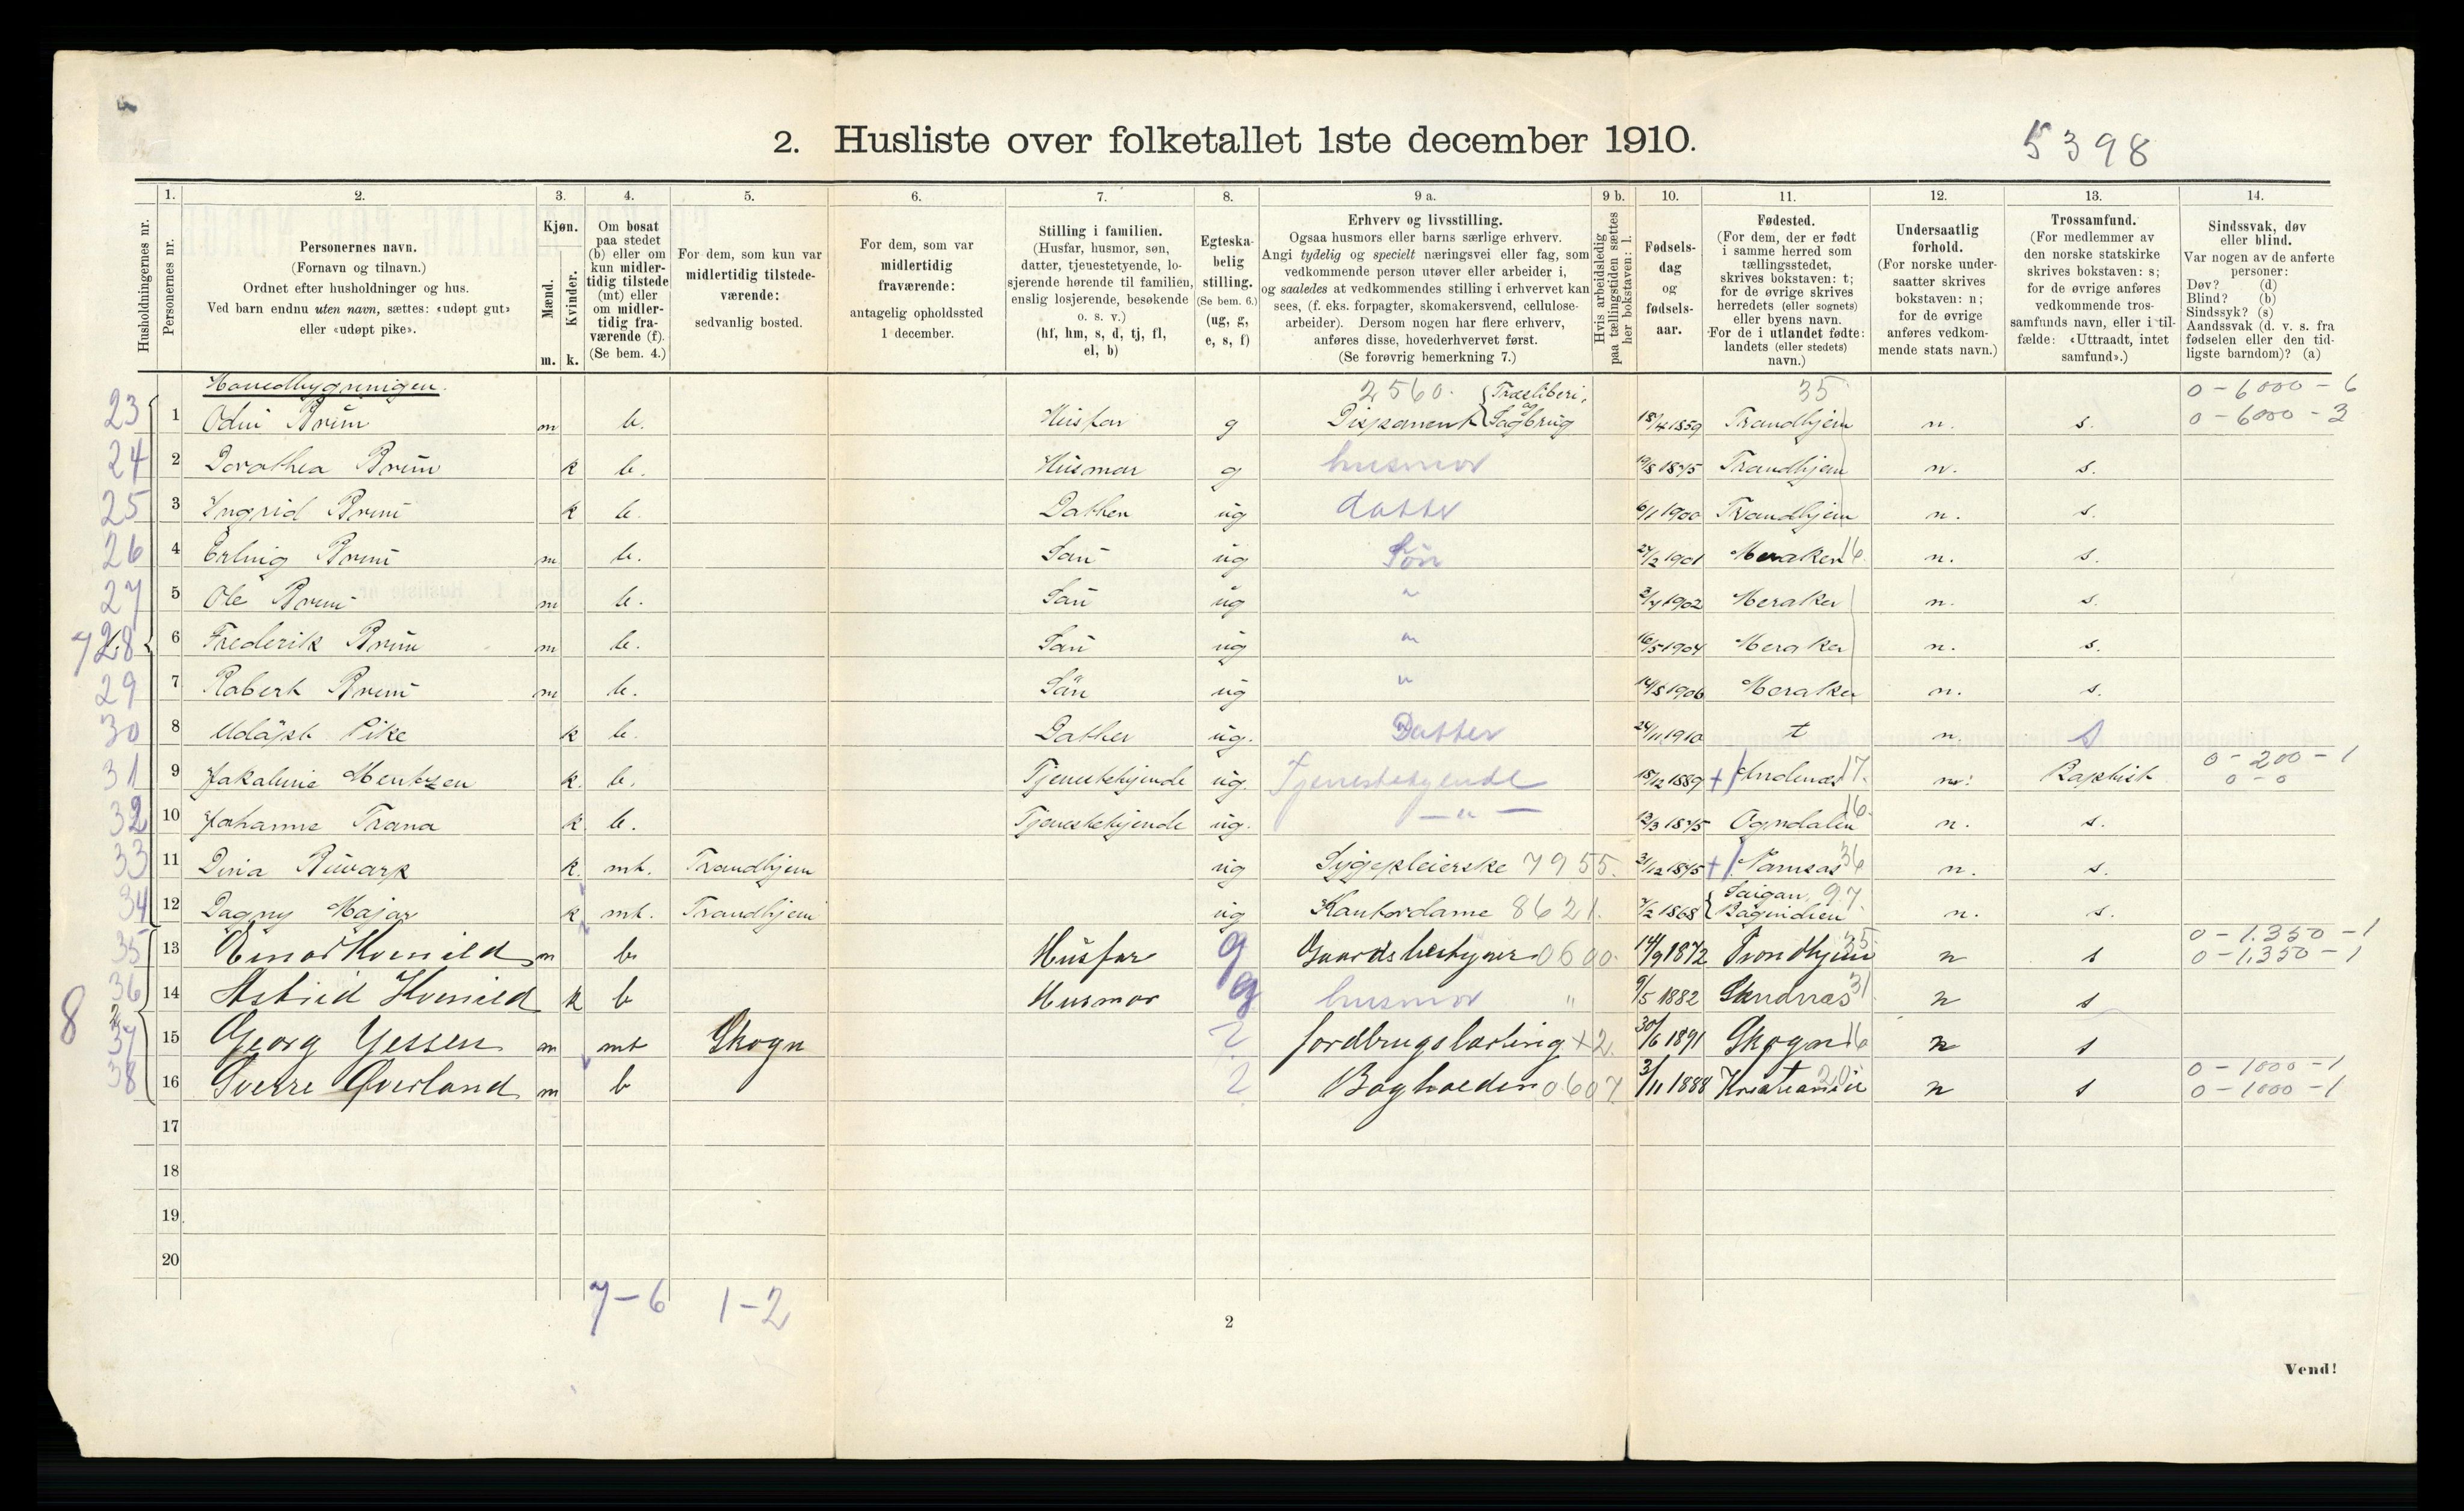 2. Husliste over folketallet 1ste december 1910.
5398
Husholdningernes nr.
1. Personernes nr.
2. Personernes navn.
(Fornavn og tilnavn.)
Ordnet efter husholdninger og hus.
Ved barn endnu uten navn, sættes: «udøpt gut»
eller «udøpt pike».
3. Kjøn.
Mænd. m.
Kvinder. k.
4. Om bosat
paa stedet
(b) eller om
kun midler-
tidig tilstede
(mt) eller
om midler-
tidig fra-
værende (f).
(Se bem. 4.)
5. For dem, som kun var
midlertidig tilstede-
værende:
sedvanlig bosted.
6. For dem, som var
midlertidig
fraværende:
antagelig opholdssted
1 december.
7. Stilling i familien.
(Husfar, husmor, søn,
datter, tjenestetyende, lo-
sjerende hørende til familien,
enslig losjerende, besøkende
o. s. v.)
(hf, hm, s, d, tj, fl,
el, b)
8. Egteska-
belig
stilling.
(Se bem. 6.)
(ug, g,
e, s, f)
9 a. Erhverv og livsstilling.
Ogsaa husmors eller barns særlige erhverv.
Angi tydelig og specielt næringsvei eller fag, som
vedkommende person utøver eller arbeider i,
og saaledes at vedkommendes stilling i erhvervet kan
sees, (f. eks. forpagter, skomakersvend, cellulose-
arbeider). Dersom nogen har flere erhverv,
anføres disse, hovederhvervet først.
(Se forøvrig bemerkning 7.)
9 b. Hvis arbeidsledig
paa tællingstiden sættes
her bokstaven: l.
10. Fødsels-
dag
og
fødsels-
aar.
11. Fødested.
(For dem, der er født
i samme herred som
tællingsstedet,
skrives bokstaven: t;
for de øvrige skrives
herredets (eller sognets)
eller byens navn.
For de i utlandet fødte:
landets (eller stedets)
navn.)
12. Undersaatlig
forhold.
(For norske under-
saatter skrives
bokstaven: n;
for de øvrige
anføres vedkom-
mende stats navn.)
13. Trossamfund.
(For medlemmer av
den norske statskirke
skrives bokstaven: s;
for de øvrige anføres
vedkommende tros-
samfunds navn, eller i til-
fælde: «Uttraadt, intet
samfund».)
14. Sindssvak, døv
eller blind.
Var nogen av de anførte
personer:
Døv? (d)
Blind? (b)
Sindssyk? (s)
Aandssvak (d. v. s. fra
fødselen eller den tid-
ligste barndom)? (a)
Hovedbygningen. 2560. Træsliberi, 35 0 - 6000 - 6
23 1 Odin Brun m b. Husfar g Disponent og Sagbrug 18/4 1859 Trondhjem n. s. 0 - 6000 - 3
24 2 Dorothea Brun k b. Husmor g husmor 19/8 1875 Trondhjem n. s.
25 3 Ingrid Brun k b. Datter ug datter 6/1 1900 Trondhjem n. s.
26 4 Erling Brun m b. Søn ug Søn 27/2 1901 Meraker 16 n. s.
27 5 Ole Brun m b. Søn ug " 3/4 1902 Meraker n. s.
7 28 6 Frederik Brun m b. Søn ug " 16/5 1904 Meraker n. s.
29 7 Robert Brun m b. Søn ug " 14/8 1906 Meraker n. s.
30 8 Udøpt Pike k b. Datter ug. Datter 24/11 1910 t n. s
31 9 Jakobine Mentzen k. b. Tjenestetyende ug. Tjenestetyende 18/12 1889 + Inderøen 17. n. Baptist 0 - 200 - 1
0 - 0
32 10 Johanne Trana k b. Tjenestetyende ug. - " - 12/3 1875 Ogndalen 16 n. s.
33 11 Dina Buvarp k. mt. Trondhjem ug Sygepleierske 7955. 31/12 1875 + Namsos 36 n. s.
34 12 Dagny Major k mt. Trondhjem ug Kontordame 8621. 7/2 1868 Saigon 97 Bagindien n. s.
35 13 Einar Kvenild m b Husfar g Gaardsbestyrer 0600. 14/9 1872 Trondhjem 35 n s 0 - 1.350 - 1
0 - 1,350 - 1
36 14 Astrid Kvenild k b Husmor g husmor " 9/5 1882 Sandnæs 31 n s
8 37 15 Georg Jessen m mt Skogn ? Jordbrugslærling + 2. 30/6 1891 Skogn 16 n s
38 16 Sverre Øverland m b ? Bogholder 0607. 3/11 1888 Kristiania 20 n s 0 - 1000 - 1
0 - 1000 - 1
17
18
19
20
7 - 6 1 - 2
2
Vend!